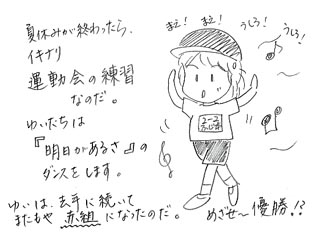 夏休みが終わったら、
イキナリ
運動会の練習
なのだ。
ゆいたちは
『明日があるさ』の
ダンスをします。
ゆいは、去年に続いて
またもや 赤組 になったのだ。
まえ! まえ! うしろ! うしろ!
2-2
めざせ〜優勝!?